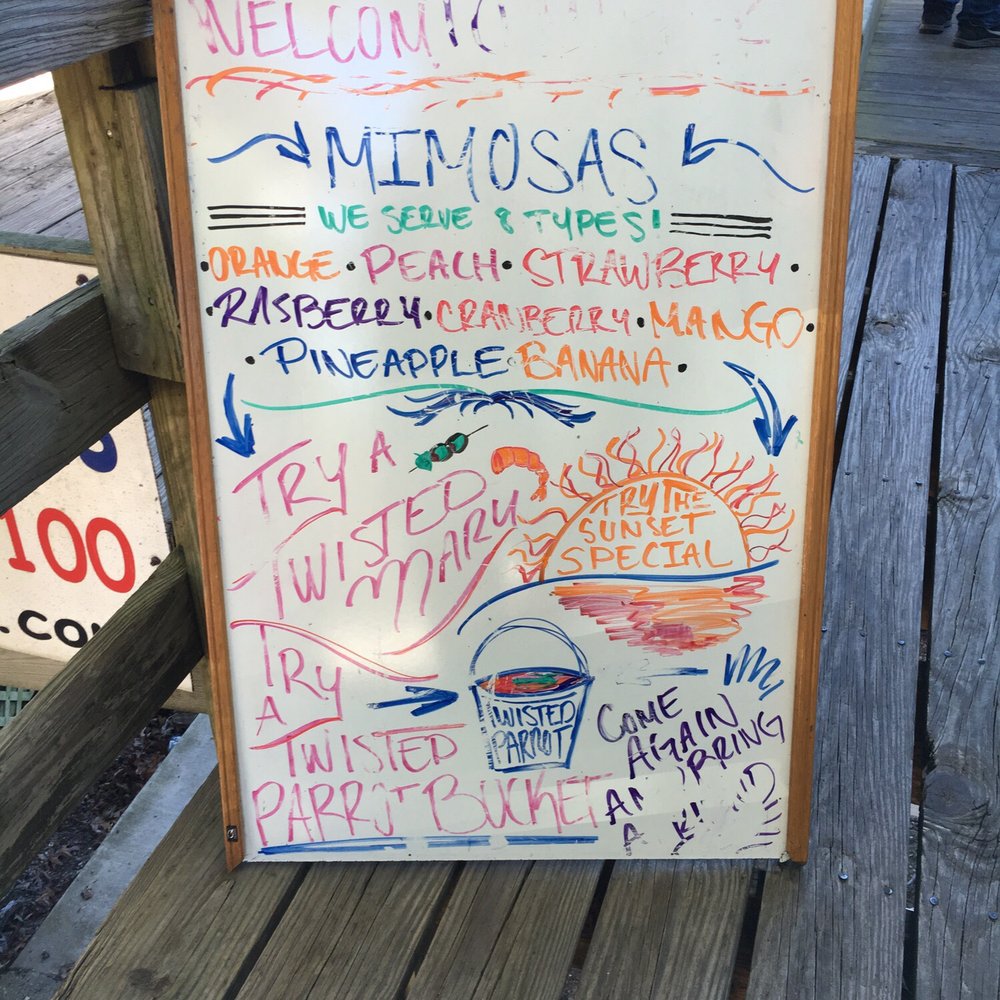 WELCOM
MIMOSAS
WE SERVE 8 TYPES!
• ORANGE • PEACH • STRAWBERRY •
• RASBERRY • CRANBERRY • MANGO •
• PINEAPPLE BANANA •
TRY A
TWISTED
MARY
TRY THE
SUNSET
SPECIAL
TRY
A
TWISTED
PARROT BUCKET
TWISTED
PARROT
COME
AGAIN
BRING
A
100